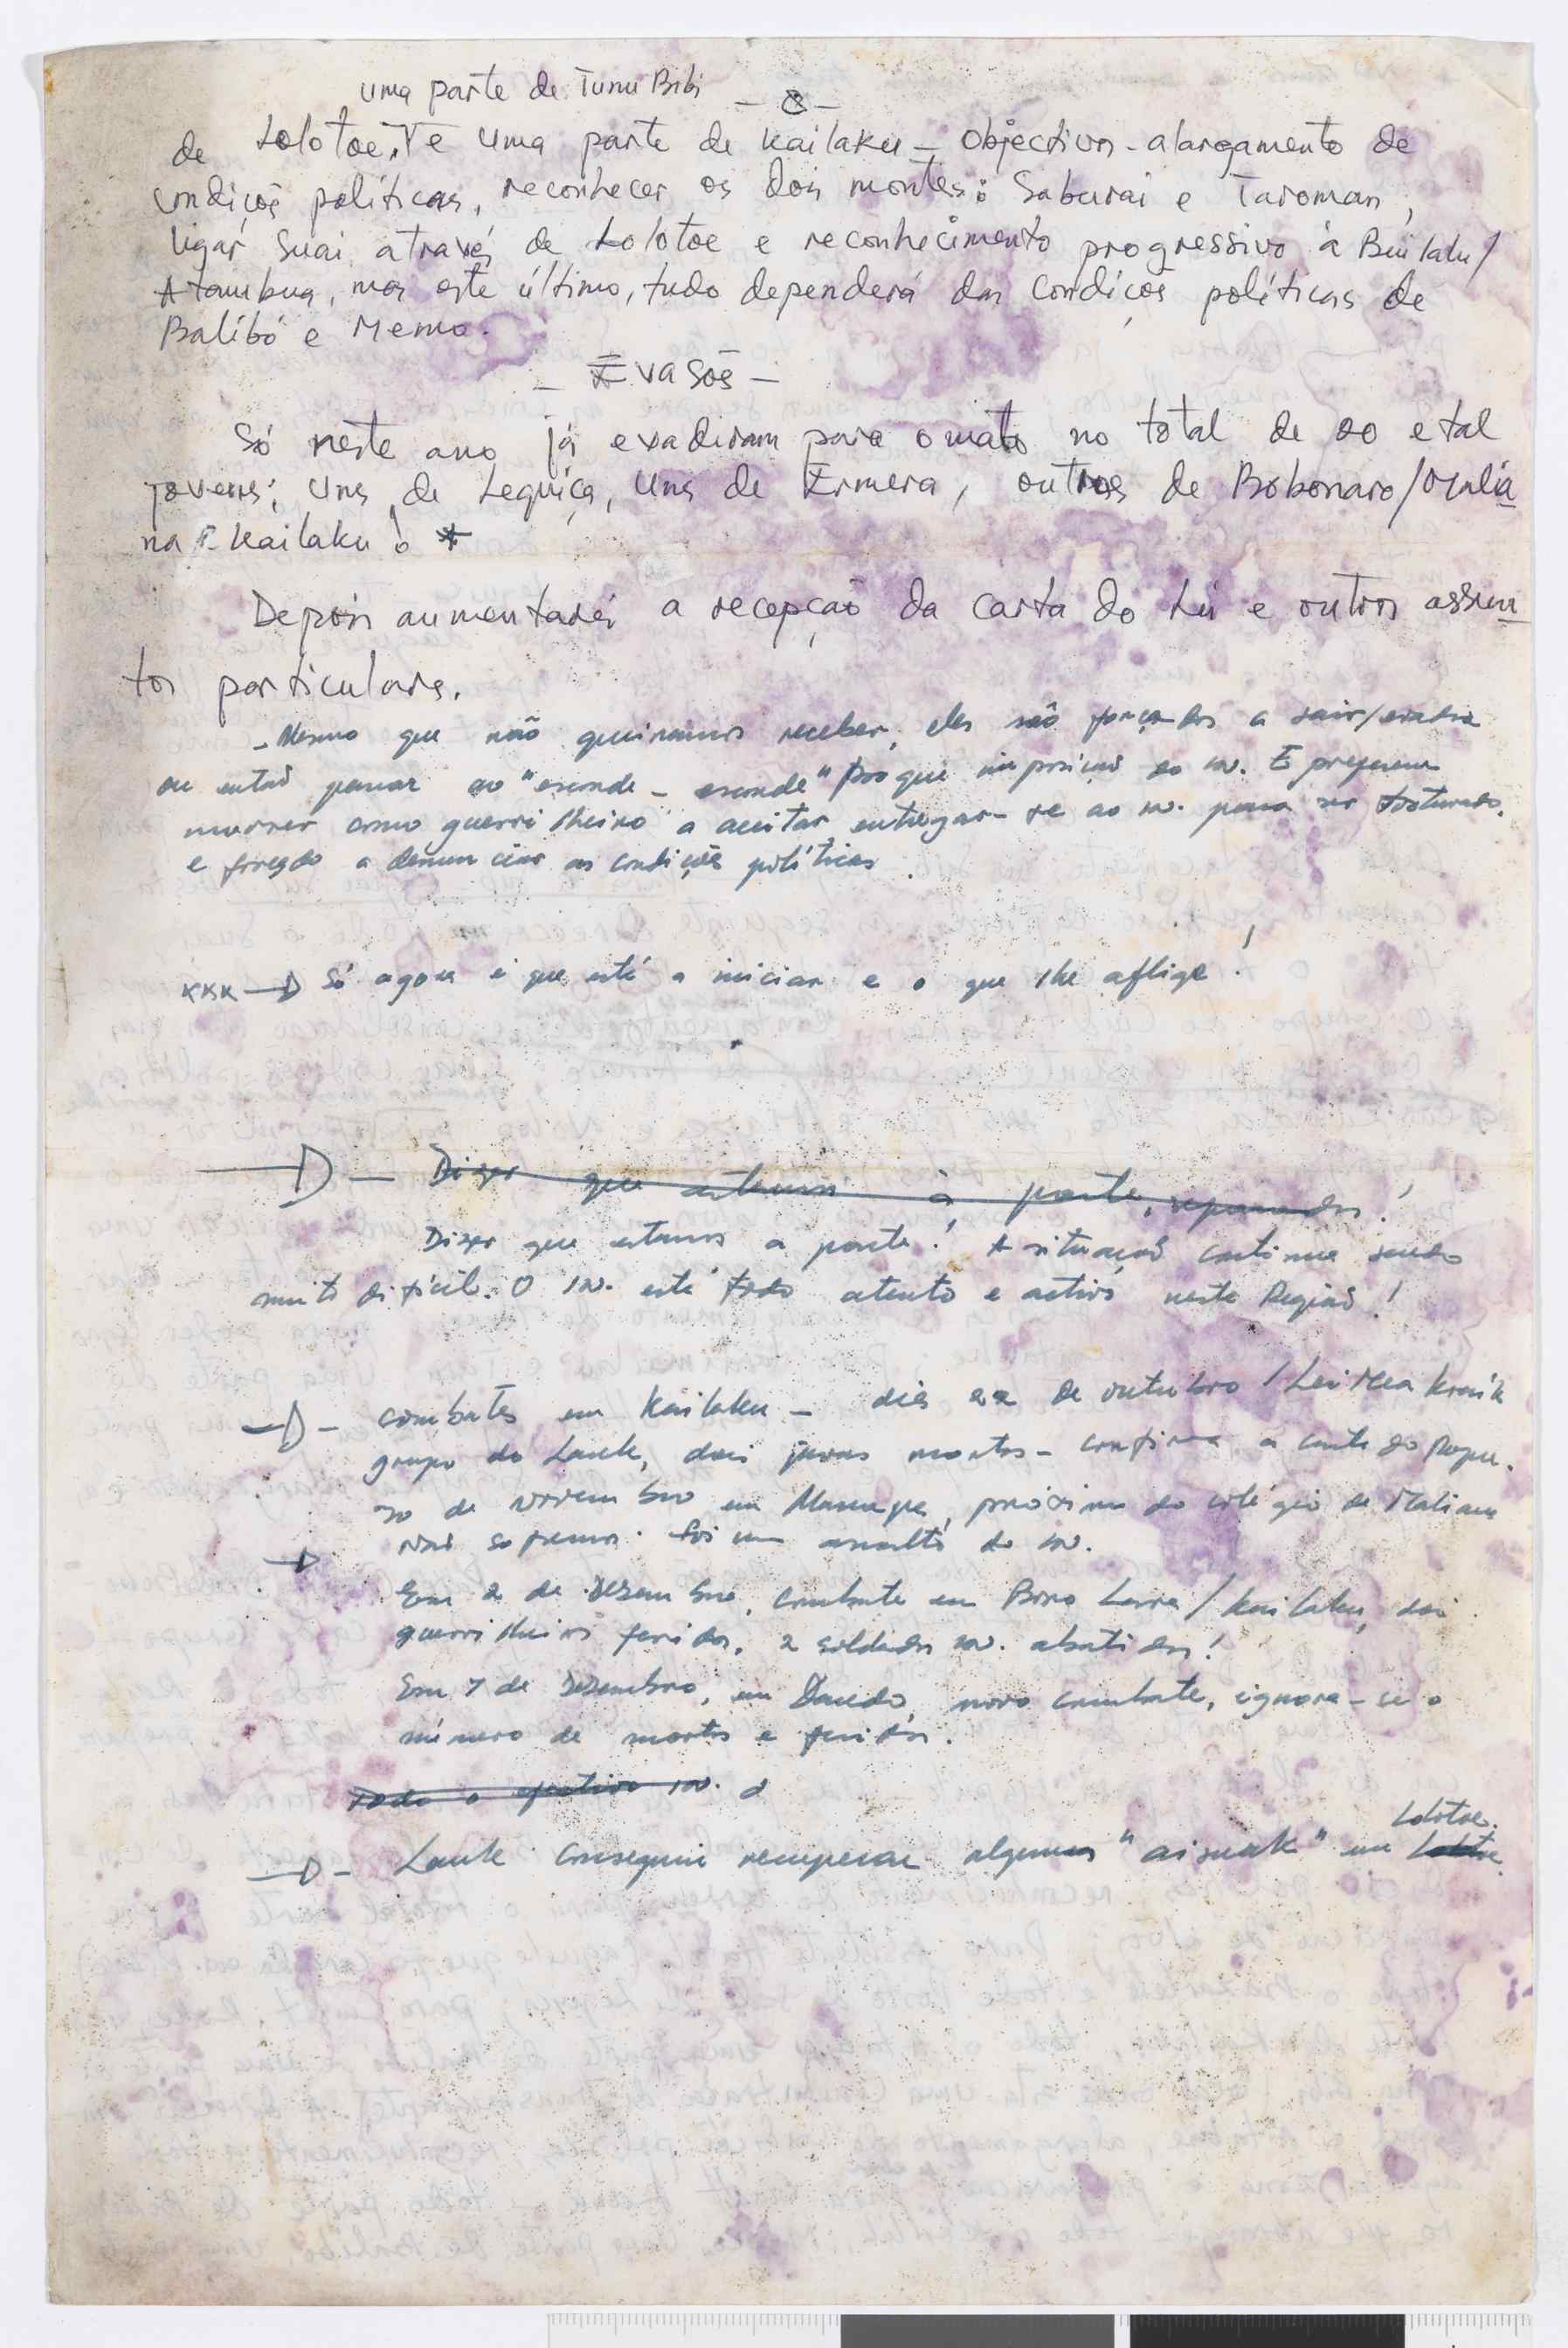 uma parte de Tunu Bibi
- 8 -
de Lolotoe, e uma parte de Kailaku - objectivos - alargamento de
condições políticas, reconhecer os dois montes: Saburai e Taroman,
ligar Suai através de Lolotoe e reconhecimento progressivo à
Atambua, mas este último, tudo dependerá das condições políticas de
Balibó e Memo.
- Evasões -
Só neste ano já evadiram para o mato no total de e tal
jovens; uns de Lequiça, uns de Ermera, outros de Bobonaro/Malia
na e Kailaku! *
Depois aumentarei a recepção da carta do Lu e outros assun
tos particulares.
- Mesmo que não queiramos receber, eles são forçados a sair/evadir
ou então passar ao "esconde - esconde" porque imposição do in. E preferem
morrer como guerrilheiro a aceitar entregar-se ao in. para ser torturado
e forçado a denunciar as condições políticas.
xxx → Só agora é que está a iniciar e o que lhe aflige!
→ - Dizer que estamos à parte, separados!
Dizer que estamos a parte! A situação continua sendo
muito difícil. O in. está todo atento e activo nesta Região!
→ - combates em Kailaku - dia 22 de outubro / Lei Mea Kraik
grupo do Lauk, dois jovens mortos - confirma a carta do
30 de novembro em, próximo do colégio de Maliana
Não sofremos. Foi um assalto do in.
→ Em 2 de Dezembro, combate em Boro Lasra/Kailaku, dois
guerrilheiros feridos, 2 soldados in. abatidos!
Em 7 de Dezembro, em, novo combate, ignora-se o
número de mortos e feridos.
Todo o efectivo in. o
Lolotoe.
→ - Lauk conseguiu recuperar algumas "aisuak" em Lolotoe